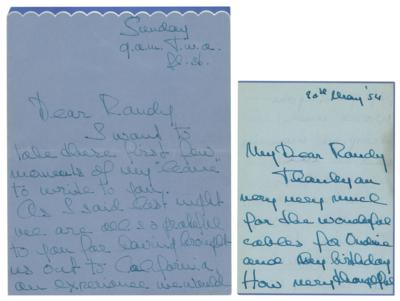 Sunday
9.a.m. T.w.a.
Dear Randy
I want to
take these first few
moments of my "leave"
to write to you.
As I said last night
we are all so grateful
to you for having brought
us out to California
an experience we would
20th May '54
My Dear Randy
Thank you
very very much
for the wonderful
cables for Ondine
and my birthday
How very thoughtful